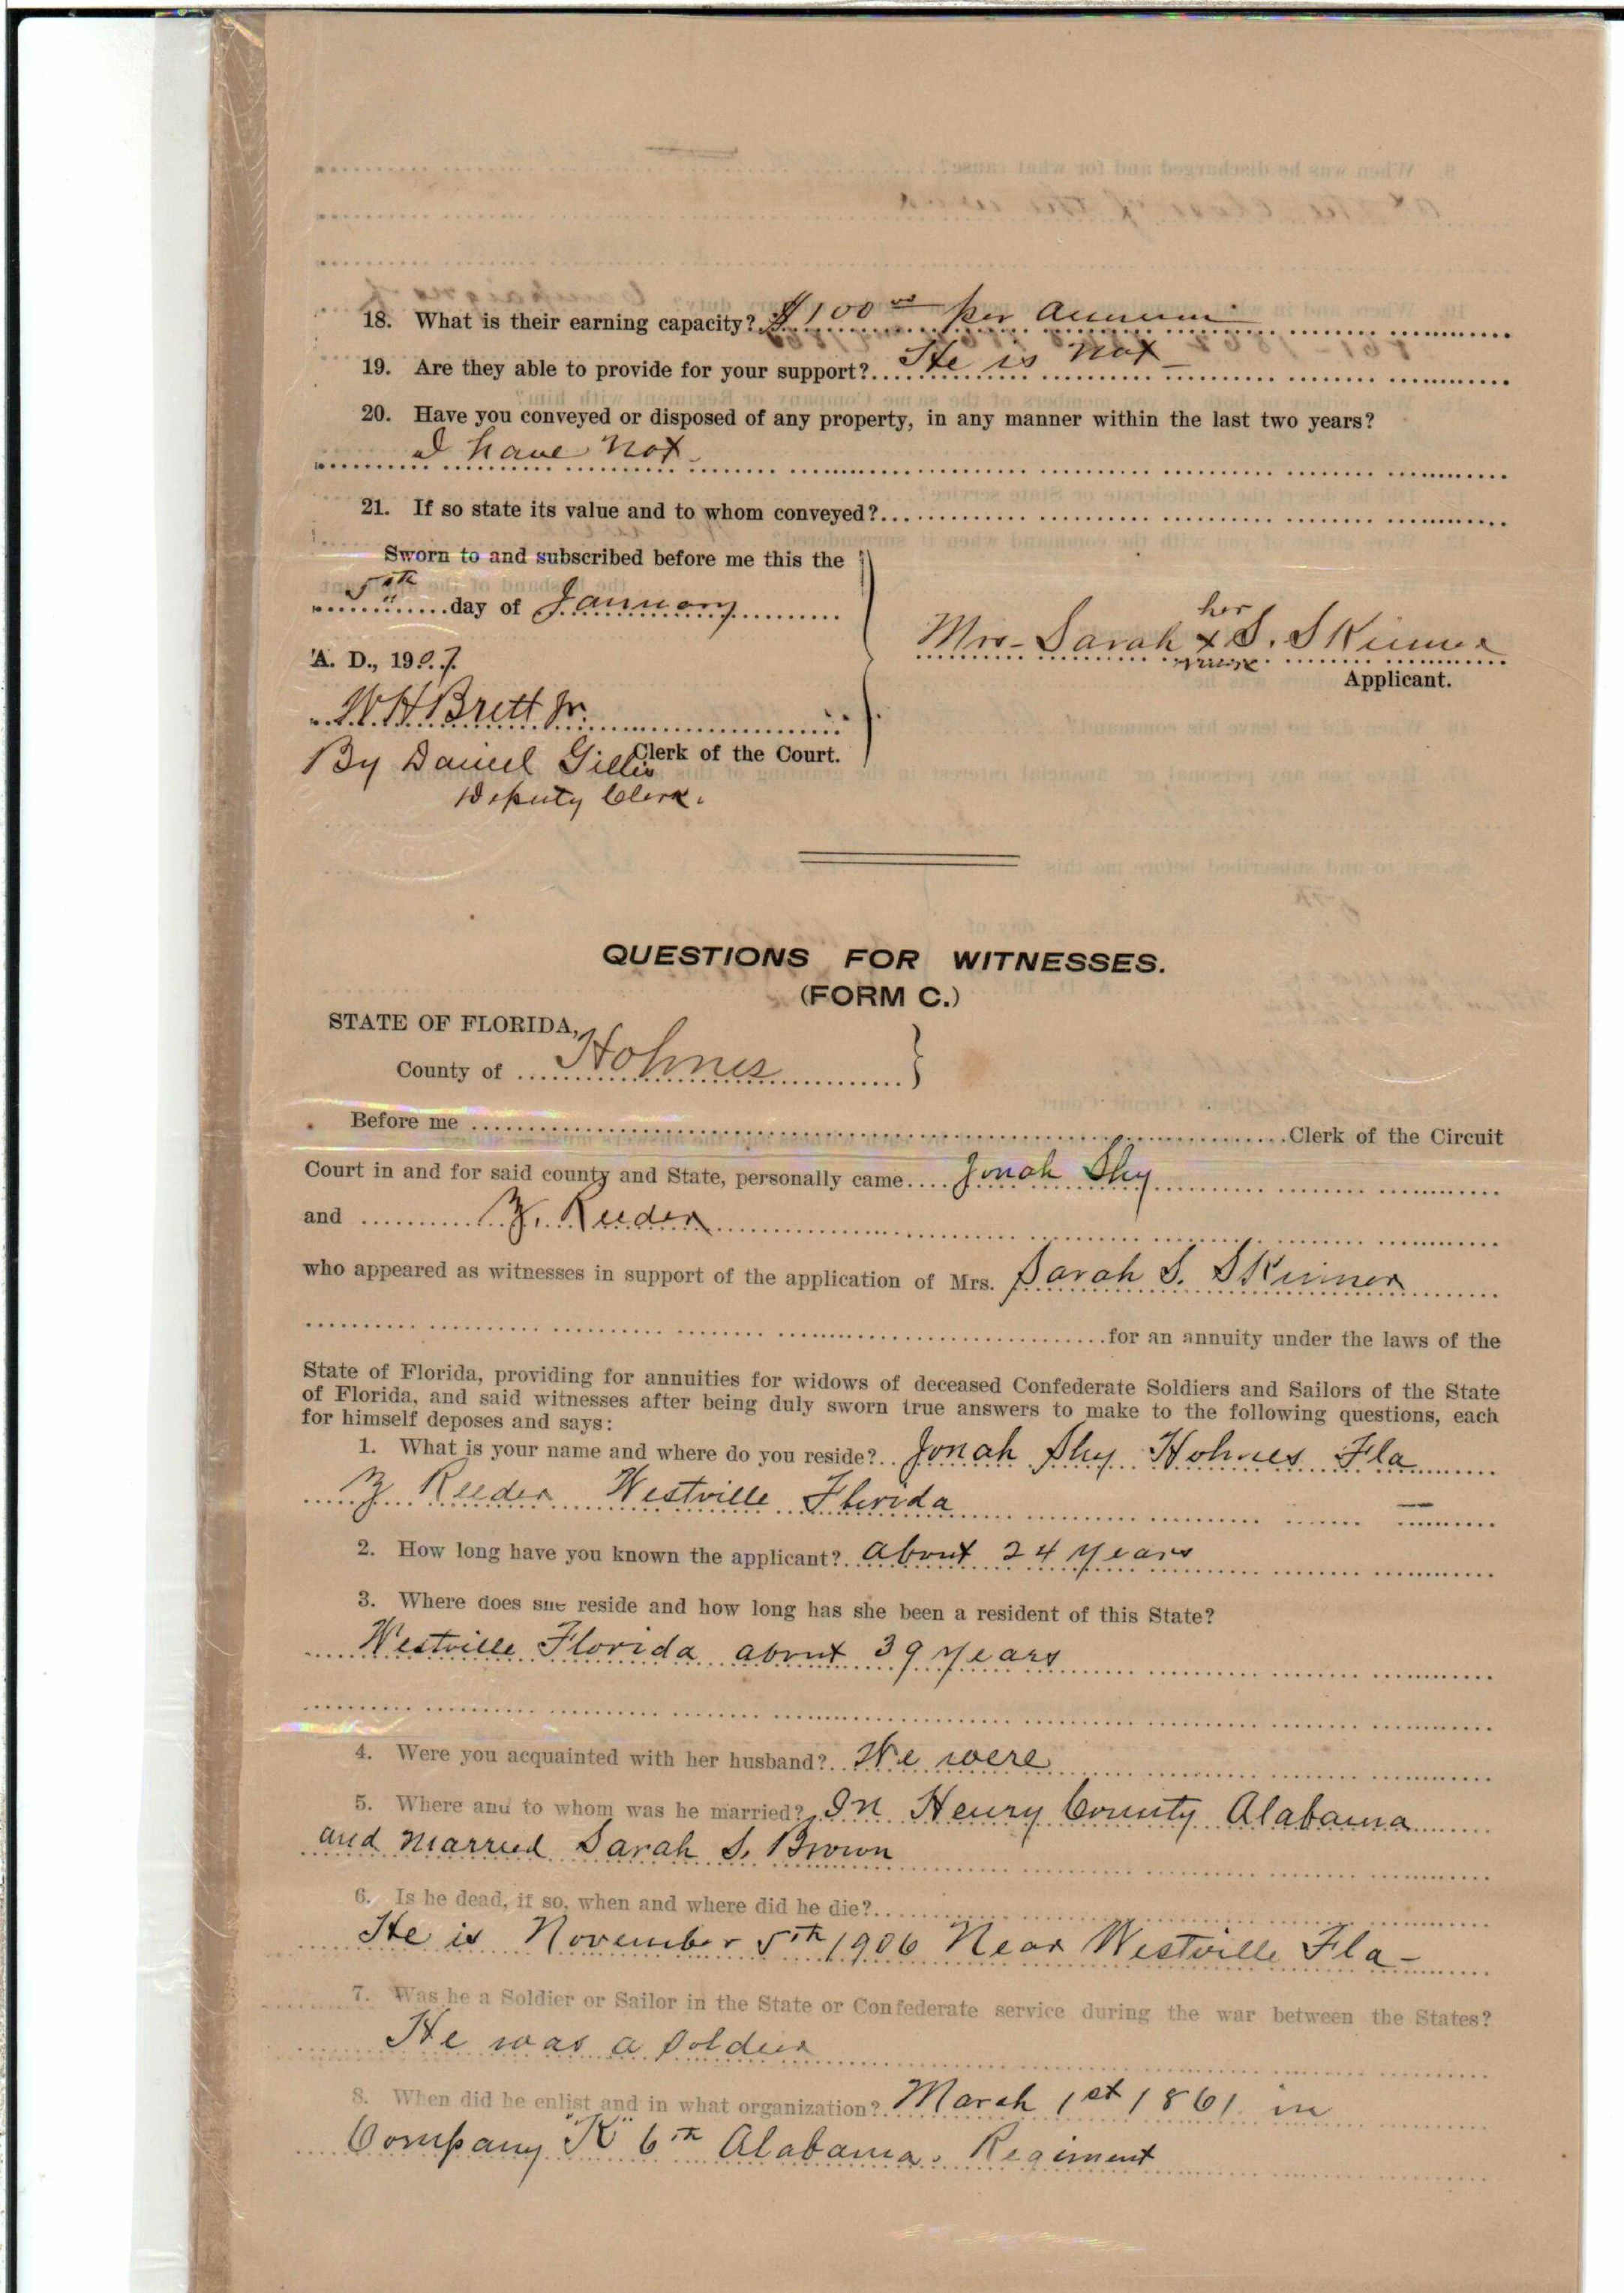 18. What is their earning capacity? $100 00 per Annum
19. Are they able to provide for your support? He is not
20. Have you conveyed or disposed of any property, in any manner within the last two years?
I have not
21. If so state its value and to whom conveyed?
Sworn to and subscribed before me this the
5th day of January
A. D., 1907.
W H Brett Jr.
Clerk of the Court.
By Daniel Gillis
Deputy Clerk.
her
Mrs- Sarah x S. Skinner
mark
Applicant.
QUESTIONS FOR WITNESSES.
(FORM C.)
STATE OF FLORIDA,
County of Holmes
Before me Clerk of the Circuit
Court in and for said county and State, personally came Jonah Shy
and Z. Reeder
who appeared as witnesses in support of the application of Mrs. Sarah S. Skinner
for an annuity under the laws of the
State of Florida, providing for annuities for widows of deceased Confederate Soldiers and Sailors of the State
of Florida, and said witnesses after being duly sworn true answers to make to the following questions, each
for himself deposes and says:
1. What is your name and where do you reside? Jonah Shy Holmes Fla
Z Reeder Westville Florida
2. How long have you known the applicant? About 24 years
3. Where does she reside and how long has she been a resident of this State?
Westville Florida about 39 years
4. Were you acquainted with her husband? We were
5. Where and to whom was he married? In Henry County Alabama
and married Sarah S. Brown
6. Is he dead, if so, when and where did he die?
He is November 5th 1906 Near Westville Fla-
7. Was he a Soldier or Sailor in the State or Confederate service during the war between the States?
He was a soldier
8. When did he enlist and in what organization? March 1st 1861 in
Company "K" 6th Alabama. Regiment